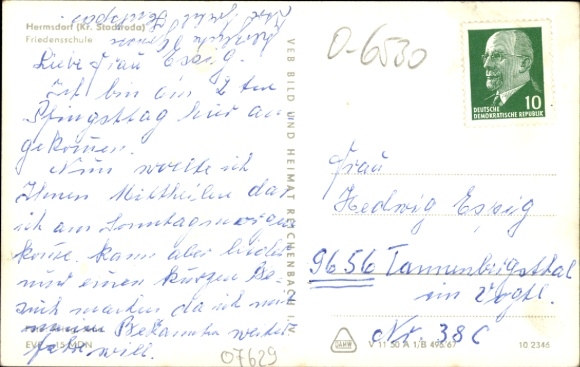 Hermsdorf (Kr. Stadtroda)
Friedensschule
Liebe Frau Essig.
Ich bin am 2 ten
Pfingsttag hier an
gekomen.
Nun wollte ich
Ihnen Mittheilen das
ich am Sonntagmorgen
kome. kann aber leider
nur einen kurzen Be-
such machen da ich mit
Bekannten weiter
fahr will.
EVP -,15 MDN
07629
VEB BILD UND HEIMAT REICHENBACH i. V.
0-6530
DEUTSCHE
DEMOKRATISCHE REPUBLIK
10
Frau
Hedwig Essig
9656 Tannenbergsthal
im Vogtl.
Nr. 38C
V 11 50 A 1/B 495/67
10 2346